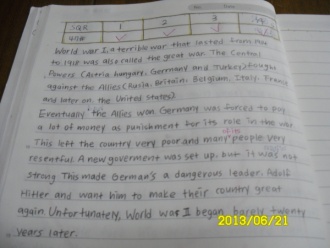 No. Date
SQR 1 2 3
World War I, a terrible war that lasted from 1914
to 1918 was also called the great war. The Central
Powers (Austria hungary, Germany and Turkey) fought
against the Allies (Rusia, Britain, Belgium, Italy, France
and later on, the United States)
Eventually the Allies won Germany was forced to pay
a lot of money as punishment for its role in the war
This left the country very poor and many people very
resentful. A new goverment was set up, but it was not
strong This made German's a dangerous leader. Adolf
Hitler and want him to make their country great
again Unfortunately, World War II began barely twenty
years later.
2013/06/21